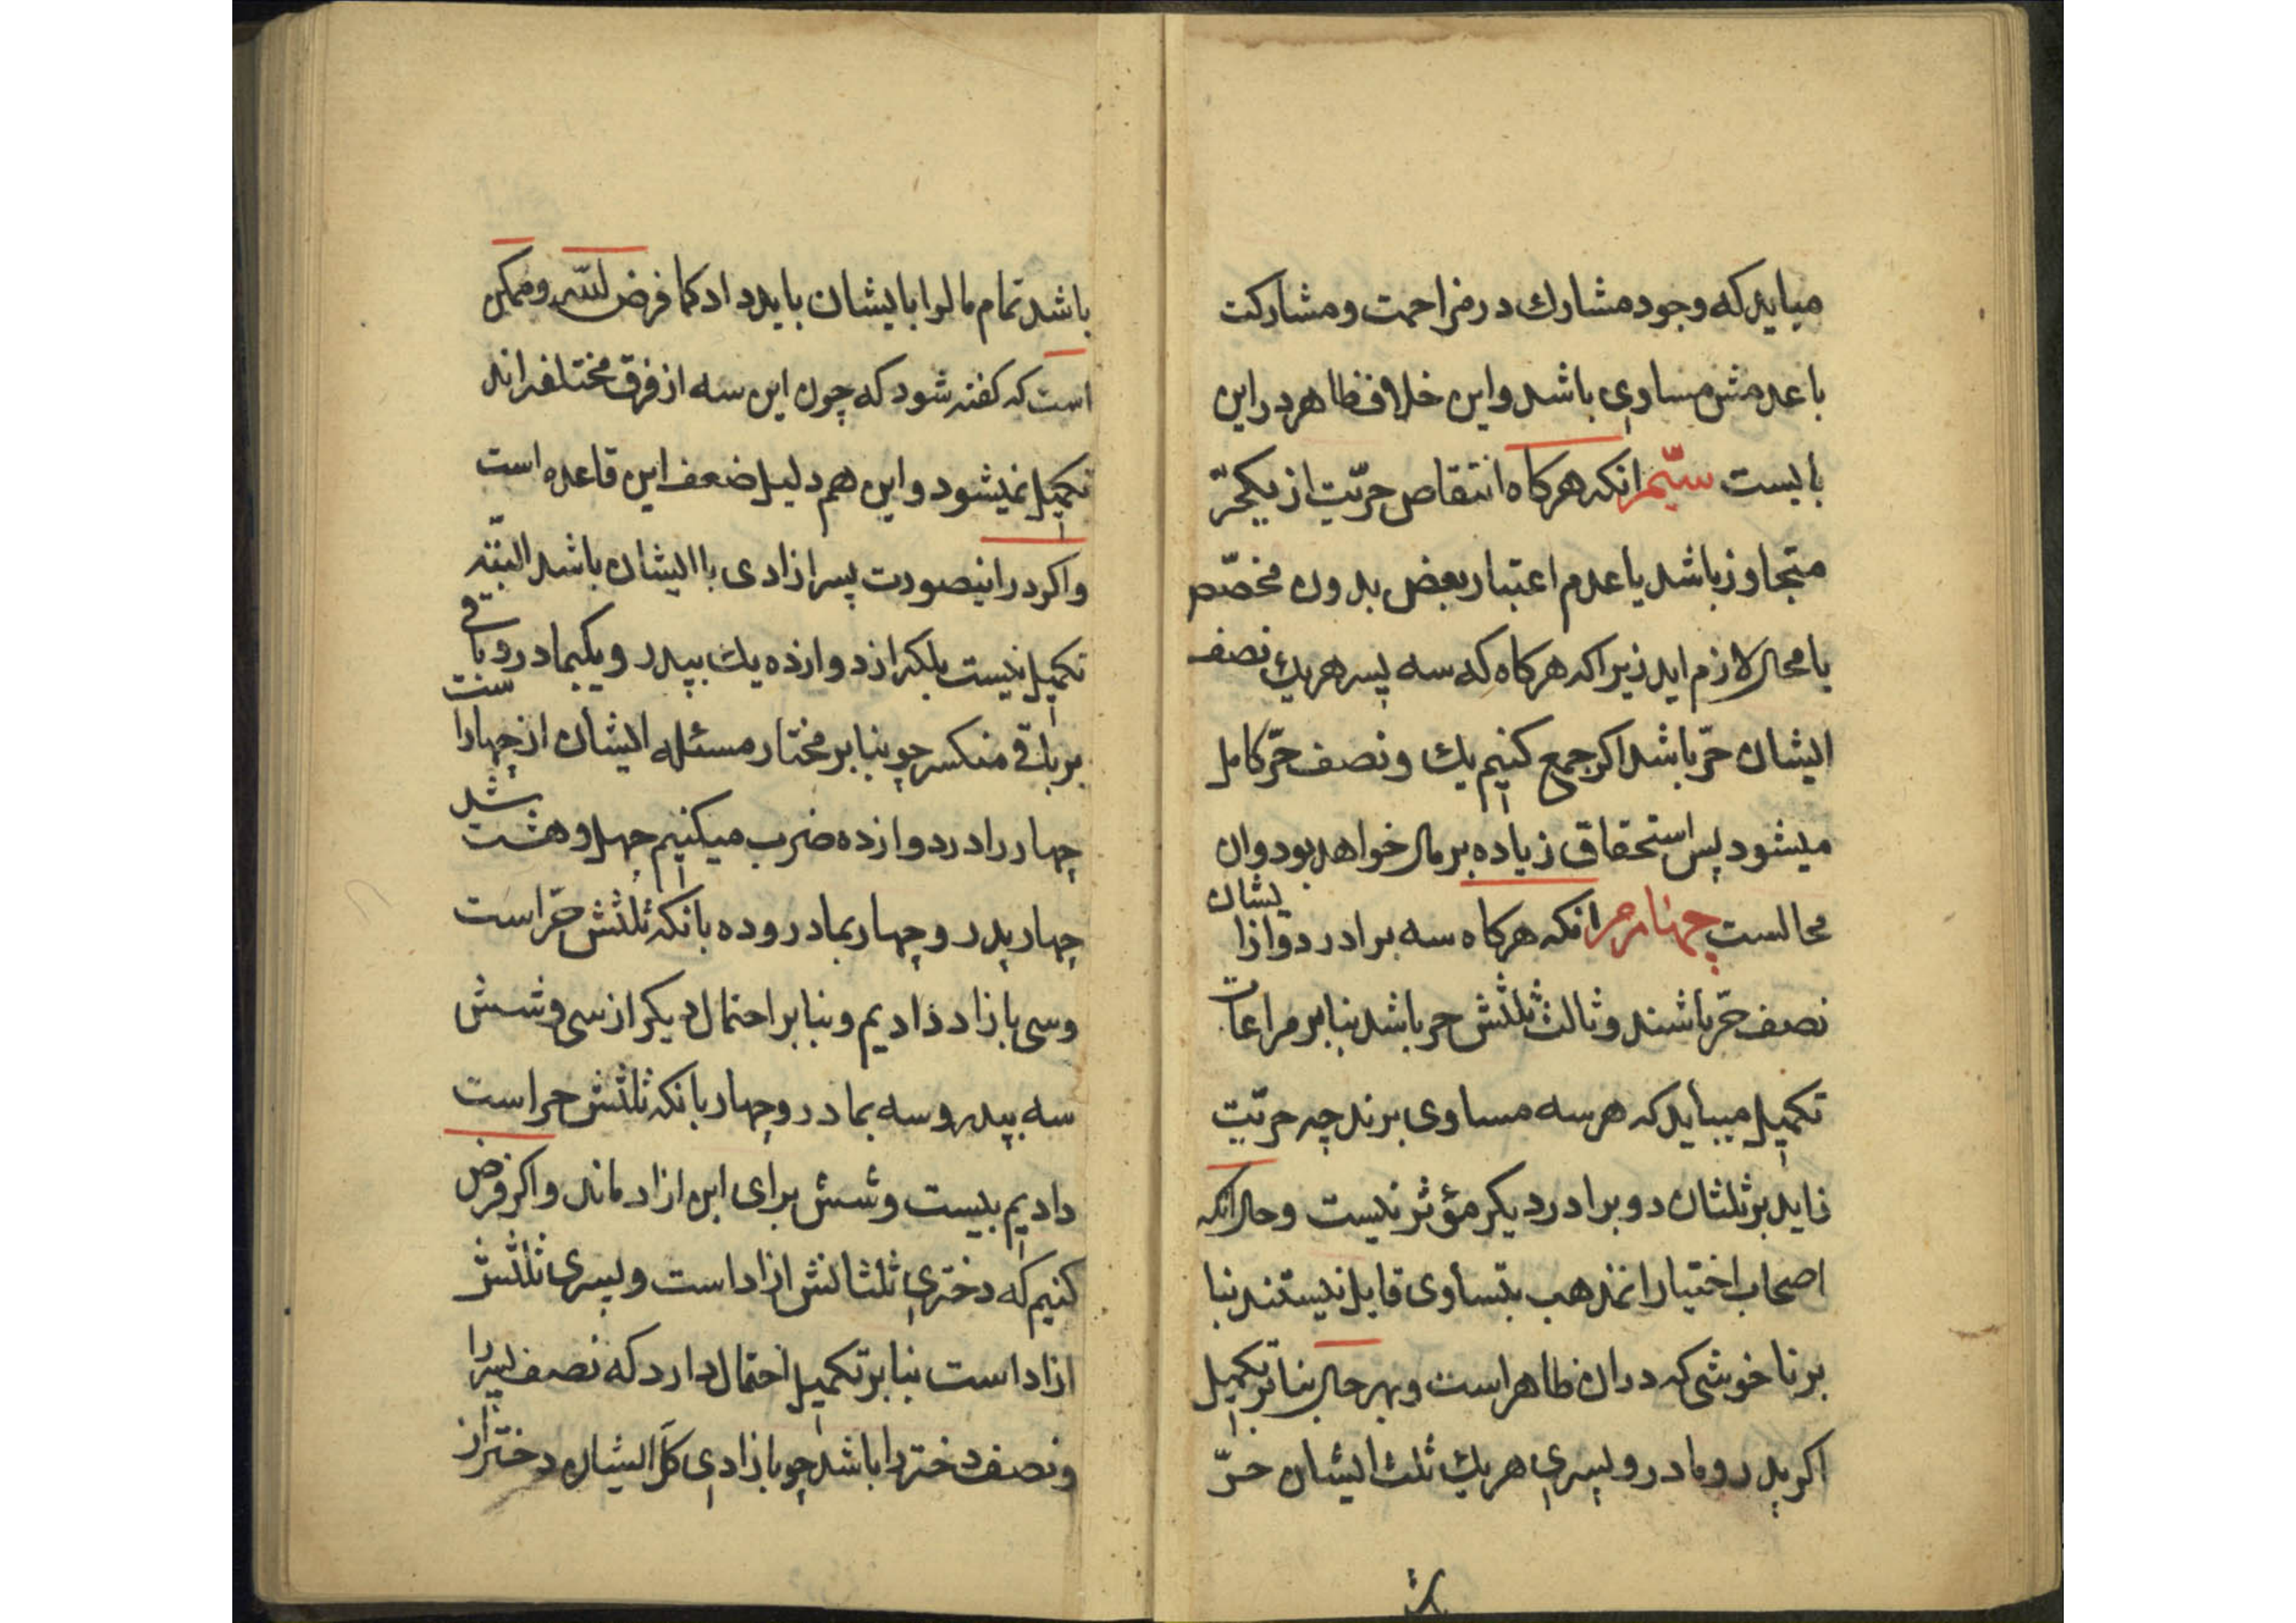 میاید که وجود مشارك در مزاحمت و مشارکت
با عدمش مساوی باشد و این خلاف ظاهر در این
بایست سیّم انکه هرکاه انتقاص حرّیت از یکحرّ
متجاوز باشد یا عدم اعتبار بعض بدون مخصّص
یا محال لازم اید زیراکه هرکاه که سه پسر هریك نصف
ایشان حرّ باشد اکر جمع کنیم یك و نصف حرّ کامل
میشود پس استحقاق زیاده بر مال خواهد بود و ان
محالست چهارم انکه هرکاه سه برادر دو از ایشان
نصف حرّ باشند و ثالث ثلثش حر باشد بنابر مراعات
تکمیل میباید که هر سه مساوی برند چه حرّیت
زاید بر ثلثان دو برادر دیکر مؤثر نیست و حال انکه
اصحاب اختیار انمذهب بتساوی قایل نیستند بنا
بر ناخوشی که در ان ظاهر است و بهر حال بنابر تکمیل
اکر پدر و مادر و پسری هریك ثلث ایشان حرّ
باشد تمام مالرا بایشان باید داد کما فرض لله و ممکن
است که کفته شود که چون این سه از فرق مختلفه اند
تکمیل نمیشود و این هم دلیل ضعف این قاعده است
و اکر در اینصورت پسر ازادی با ایشان باشد البته
تکمیل نیست بلکه از دوازده یك بپدر و یکبماد ر و باقی
بر باقی منکسر چو بنابر مختار مسئله ایشان از چهار است
چهار را در دوازده ضرب میکنیم چهل و هشت شد
چهار پدر و چهار بمادر و ده بانکه ثلثش حرّ است
و سی بازاد دادیم و بنابر احتمال دیکر از سی و شش
سه بپدر و سه بمادر و چهار بانکه ثلثش حر است
دادیم بیست و شش برای ابن ازاد ماند و اکر فرض
کنیم که دختری ثلثانش ازاد است و پسری ثلثش
ازاد است بنابر تکمیل احتمال دارد که نصف پسر را
و نصف دختر را باشد چو بازادی کلّ ایشان دختر از